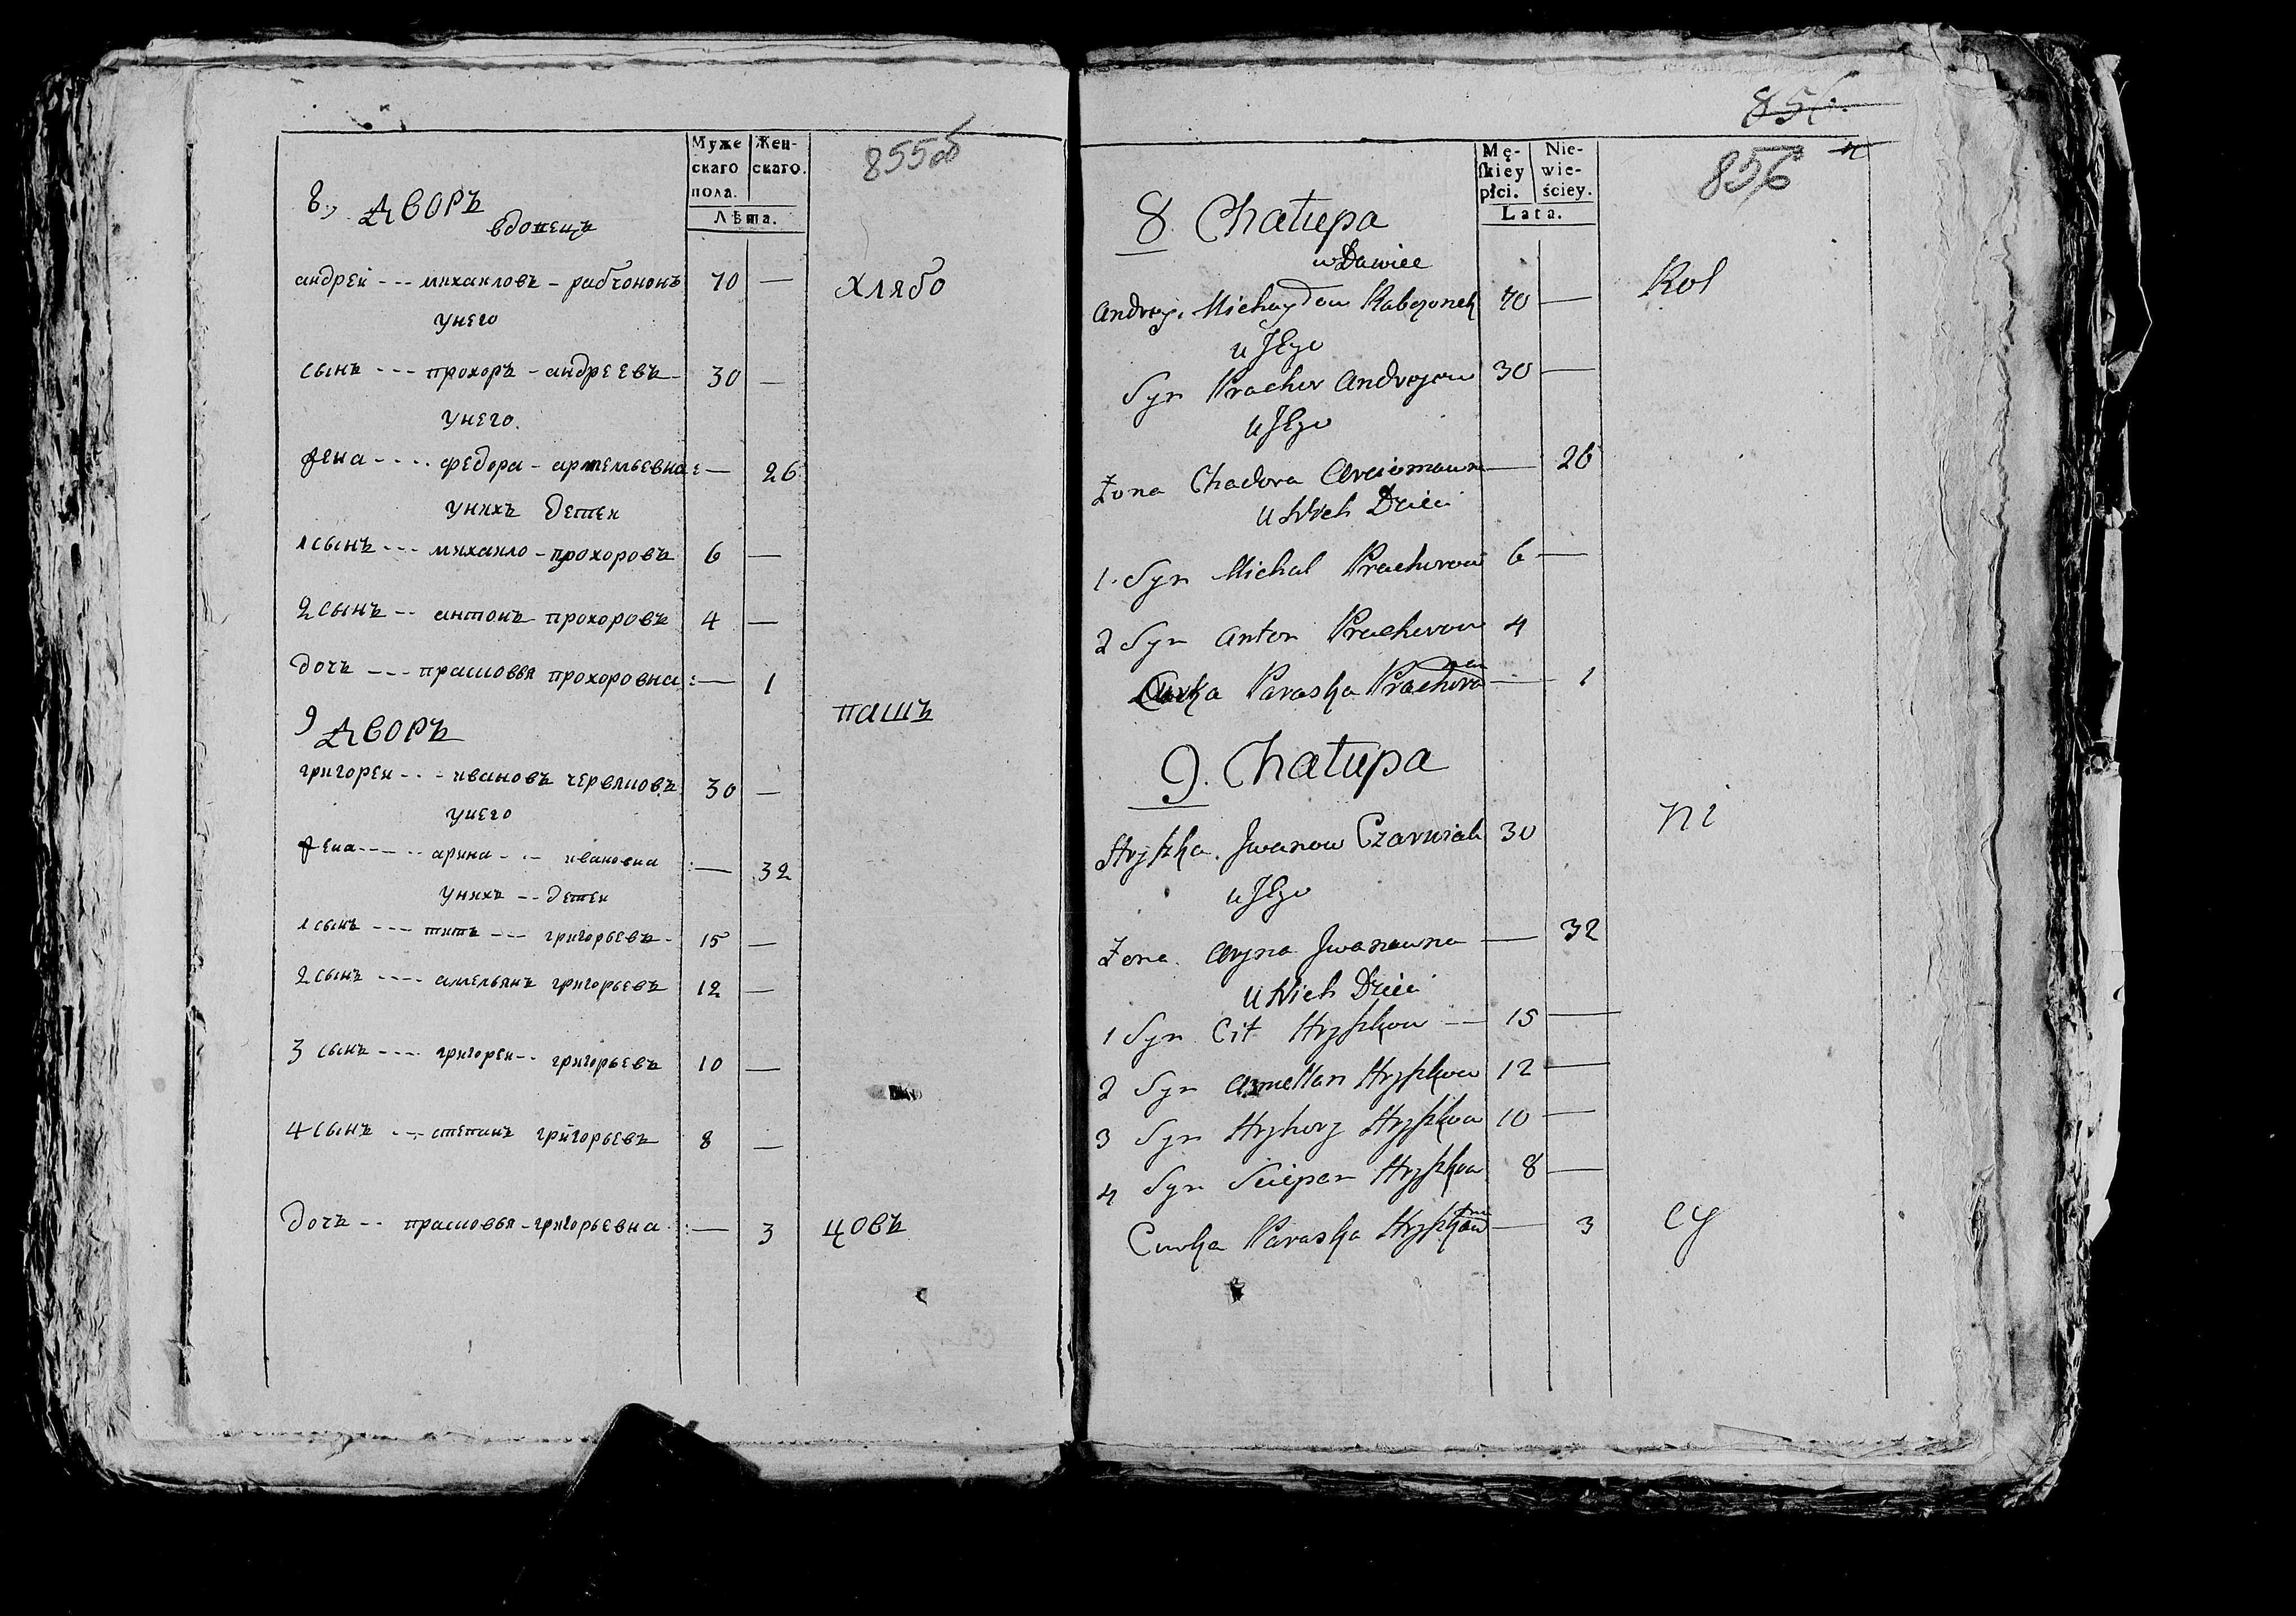 855об
Муже
скаго
пола.
Жен-
скаго.
Лѣта.
8., дворъ
вдовецъ
андрей --- михаиловъ - рабчонокъ 70 — хлябо
унего
сынъ --- прохоръ - андреевъ - 30 —
унего.
жена ---- федора - артемьевна :— 26
унихъ детеи
1 сынъ --- михаило - прохоровъ 6 —
2 сынъ -- антонъ прохоровъ 4 —
дочъ --- прасковья прохоровна :— 1
пашъ
9 дворъ
григореи --- ивановъ червяковъ 30 —
унего
жена ---- арина --- ивановна :— 32
унихъ -- детеи
1 сынъ --- титъ --- григорьевъ - 15 —
2 сынъ ---- амельянъ григорьевъ 12 —
3 сынъ ---- григореи -- григорьевъ 10 —
4 сынъ --- степанъ григорьевъ 8 —
дочъ -- прасковья - григорьевна :— 3 цовъ
856
Mę-
skiey
płci.
Nie-
wie-
ściey.
Lata.
8. Chatupa
wDawiec
Andrey. Michayłow Rabczonek 70 — Rol
u JEgo
Syn Prachor Andrejew 30 —
u JEgo
Żona Chadora Arciomawna — 26
U Nich Dzieci
1. Syn Michał Prachorow 6 —
2 Syn Anton Prachorow 4
Curka Paraska Prachorowna — 1
9. Chatupa
Hryszka. Jwanow Czarwiak 30 ni
u JEgo
Żona Aryna Jwanawna — 32
U Nich Dzieci
1 Syn Cit Hryszkow — 15 —
2 Syn Amellan Hryszkow 12 —
3 Syn Hryhory Hryszkow 10 —
4 Syn Sciepan Hryszkow 8 —
Curka Paraska Hryszkowna — 3 cy